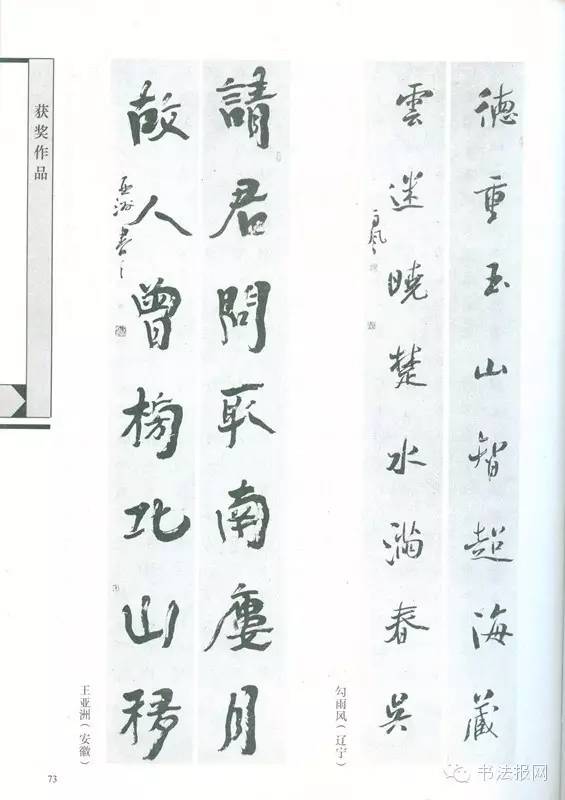 德重玉山智超海藏
雲迷曉楚水滿春吳
雨風
勾雨风(辽宁)
請君問取南廔月
故人曾榜北山移
亞洲書
王亚洲(安徽)
获奖作品
73
书法报网